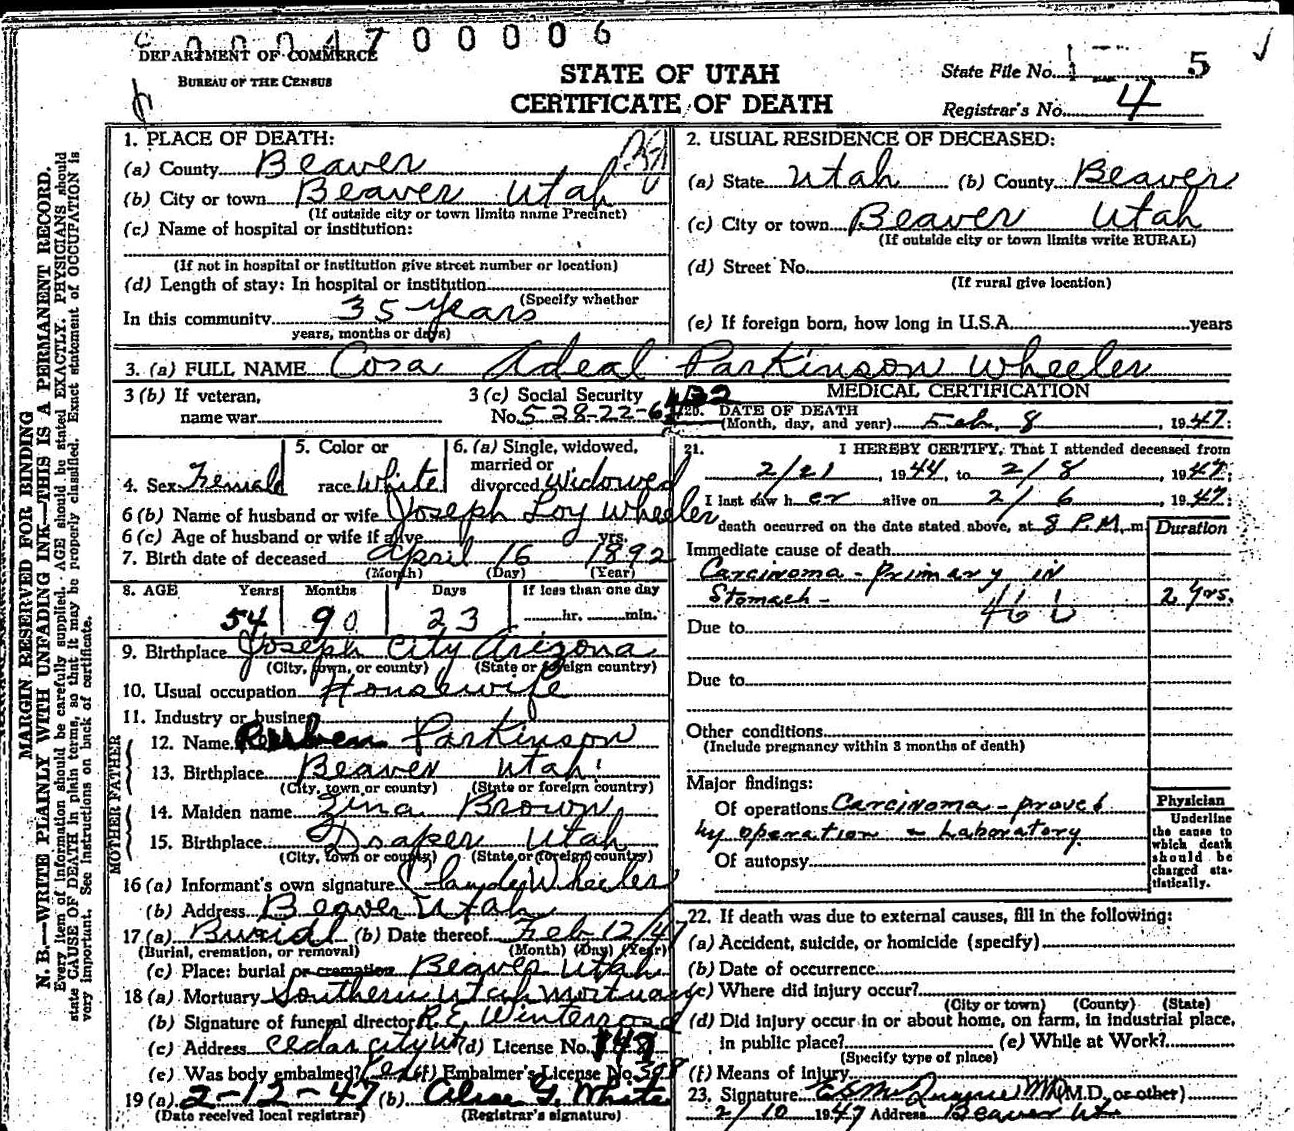 0000470000006
DEPARTMENT OF COMMERCE
BUREAU OF THE CENSUS
STATE OF UTAH
CERTIFICATE OF DEATH
State File No. 5
Registrar's No. 4
MARGIN RESERVED FOR BINDING
N. B.—WRITE PLAINLY WITH UNFADING INK—THIS IS A PERMANENT RECORD.
Every item of information should be carefully supplied. AGE should be stated EXACTLY. PHYSICIANS should
state CAUSE OF DEATH in plain terms, so that it may be properly classified. Exact statement of OCCUPATION is
very important. See instructions on back of certificate.
1. PLACE OF DEATH:
(a) County Beaver
(b) City or town Beaver Utah
(If outside city or town limits name Precinct)
(c) Name of hospital or institution:
(If not in hospital or institution give street number or location)
(d) Length of stay: In hospital or institution
(Specify whether
In this community 35 years
years, months or days)
2. USUAL RESIDENCE OF DECEASED:
(a) State Utah (b) County Beaver
(c) City or town Beaver Utah
(If outside city or town limits write RURAL)
(d) Street No.
(If rural give location)
(e) If foreign born, how long in U.S.A. years
3. (a) FULL NAME Cora Adeal Parkinson Wheeler
3 (b) If veteran,
name war
3 (c) Social Security
No. 528-22-6
4. Sex Female
5. Color or
race White
6. (a) Single, widowed,
married or
divorced Widowed
6 (b) Name of husband or wife Joseph Loy Wheeler
6 (c) Age of husband or wife if alive yrs.
7. Birth date of deceased April 16 1892
(Month) (Day) (Year)
8. AGE Years Months Days If less than one day
54 9 23 hr. min.
9. Birthplace Joseph City Arizona
(City, town, or county) (State or foreign country)
10. Usual occupation Housewife
11. Industry or business
FATHER
12. Name Reuben Parkinson
13. Birthplace Beaver Utah
(City, town or county) (State or foreign country)
MOTHER
14. Maiden name Zina Brown
15. Birthplace Draper Utah
(City, town or county) (State or foreign country)
16 (a) Informant's own signature Claude Wheeler
(b) Address Beaver Utah
17 (a) Burial (b) Date thereof Feb 12/47
(Burial, cremation, or removal) (Month) (Day) (Year)
(c) Place: burial or cremation Beaver Utah
18 (a) Mortuary Southern Utah Mortuary
(b) Signature of funeral director R. E. Winterrose
(c) Address Cedar City Ut (d) License No.
(e) Was body embalmed? Yes (f) Embalmer's License No.
19 (a) 2-12-47 (b) Alice G. White
(Date received local registrar) (Registrar's signature)
MEDICAL CERTIFICATION
20. DATE OF DEATH
(Month, day, and year) Feb. 8, 1947:
21. I HEREBY CERTIFY, That I attended deceased from
2/21, 1944, to 2/8, 1947;
I last saw her alive on 2/6, 1947;
death occurred on the date stated above, at 8 P.M. m
Duration
Immediate cause of death
Carcinoma - primary in
Stomach - 2 yrs.
46 b
Due to
Due to
Other conditions
(Include pregnancy within 3 months of death)
Major findings:
Of operations Carcinoma - proved
by operation & Laboratory.
Of autopsy
Physician
Underline
the cause to
which death
should be
charged sta-
tistically.
22. If death was due to external causes, fill in the following:
(a) Accident, suicide, or homicide (specify)
(b) Date of occurrence
(c) Where did injury occur?
(City or town) (County) (State)
(d) Did injury occur in or about home, on farm, in industrial place,
in public place? (e) While at Work?
(Specify type of place)
(f) Means of injury
23. Signature (M.D. or other)
2/10 1947 Address Beaver Ut.